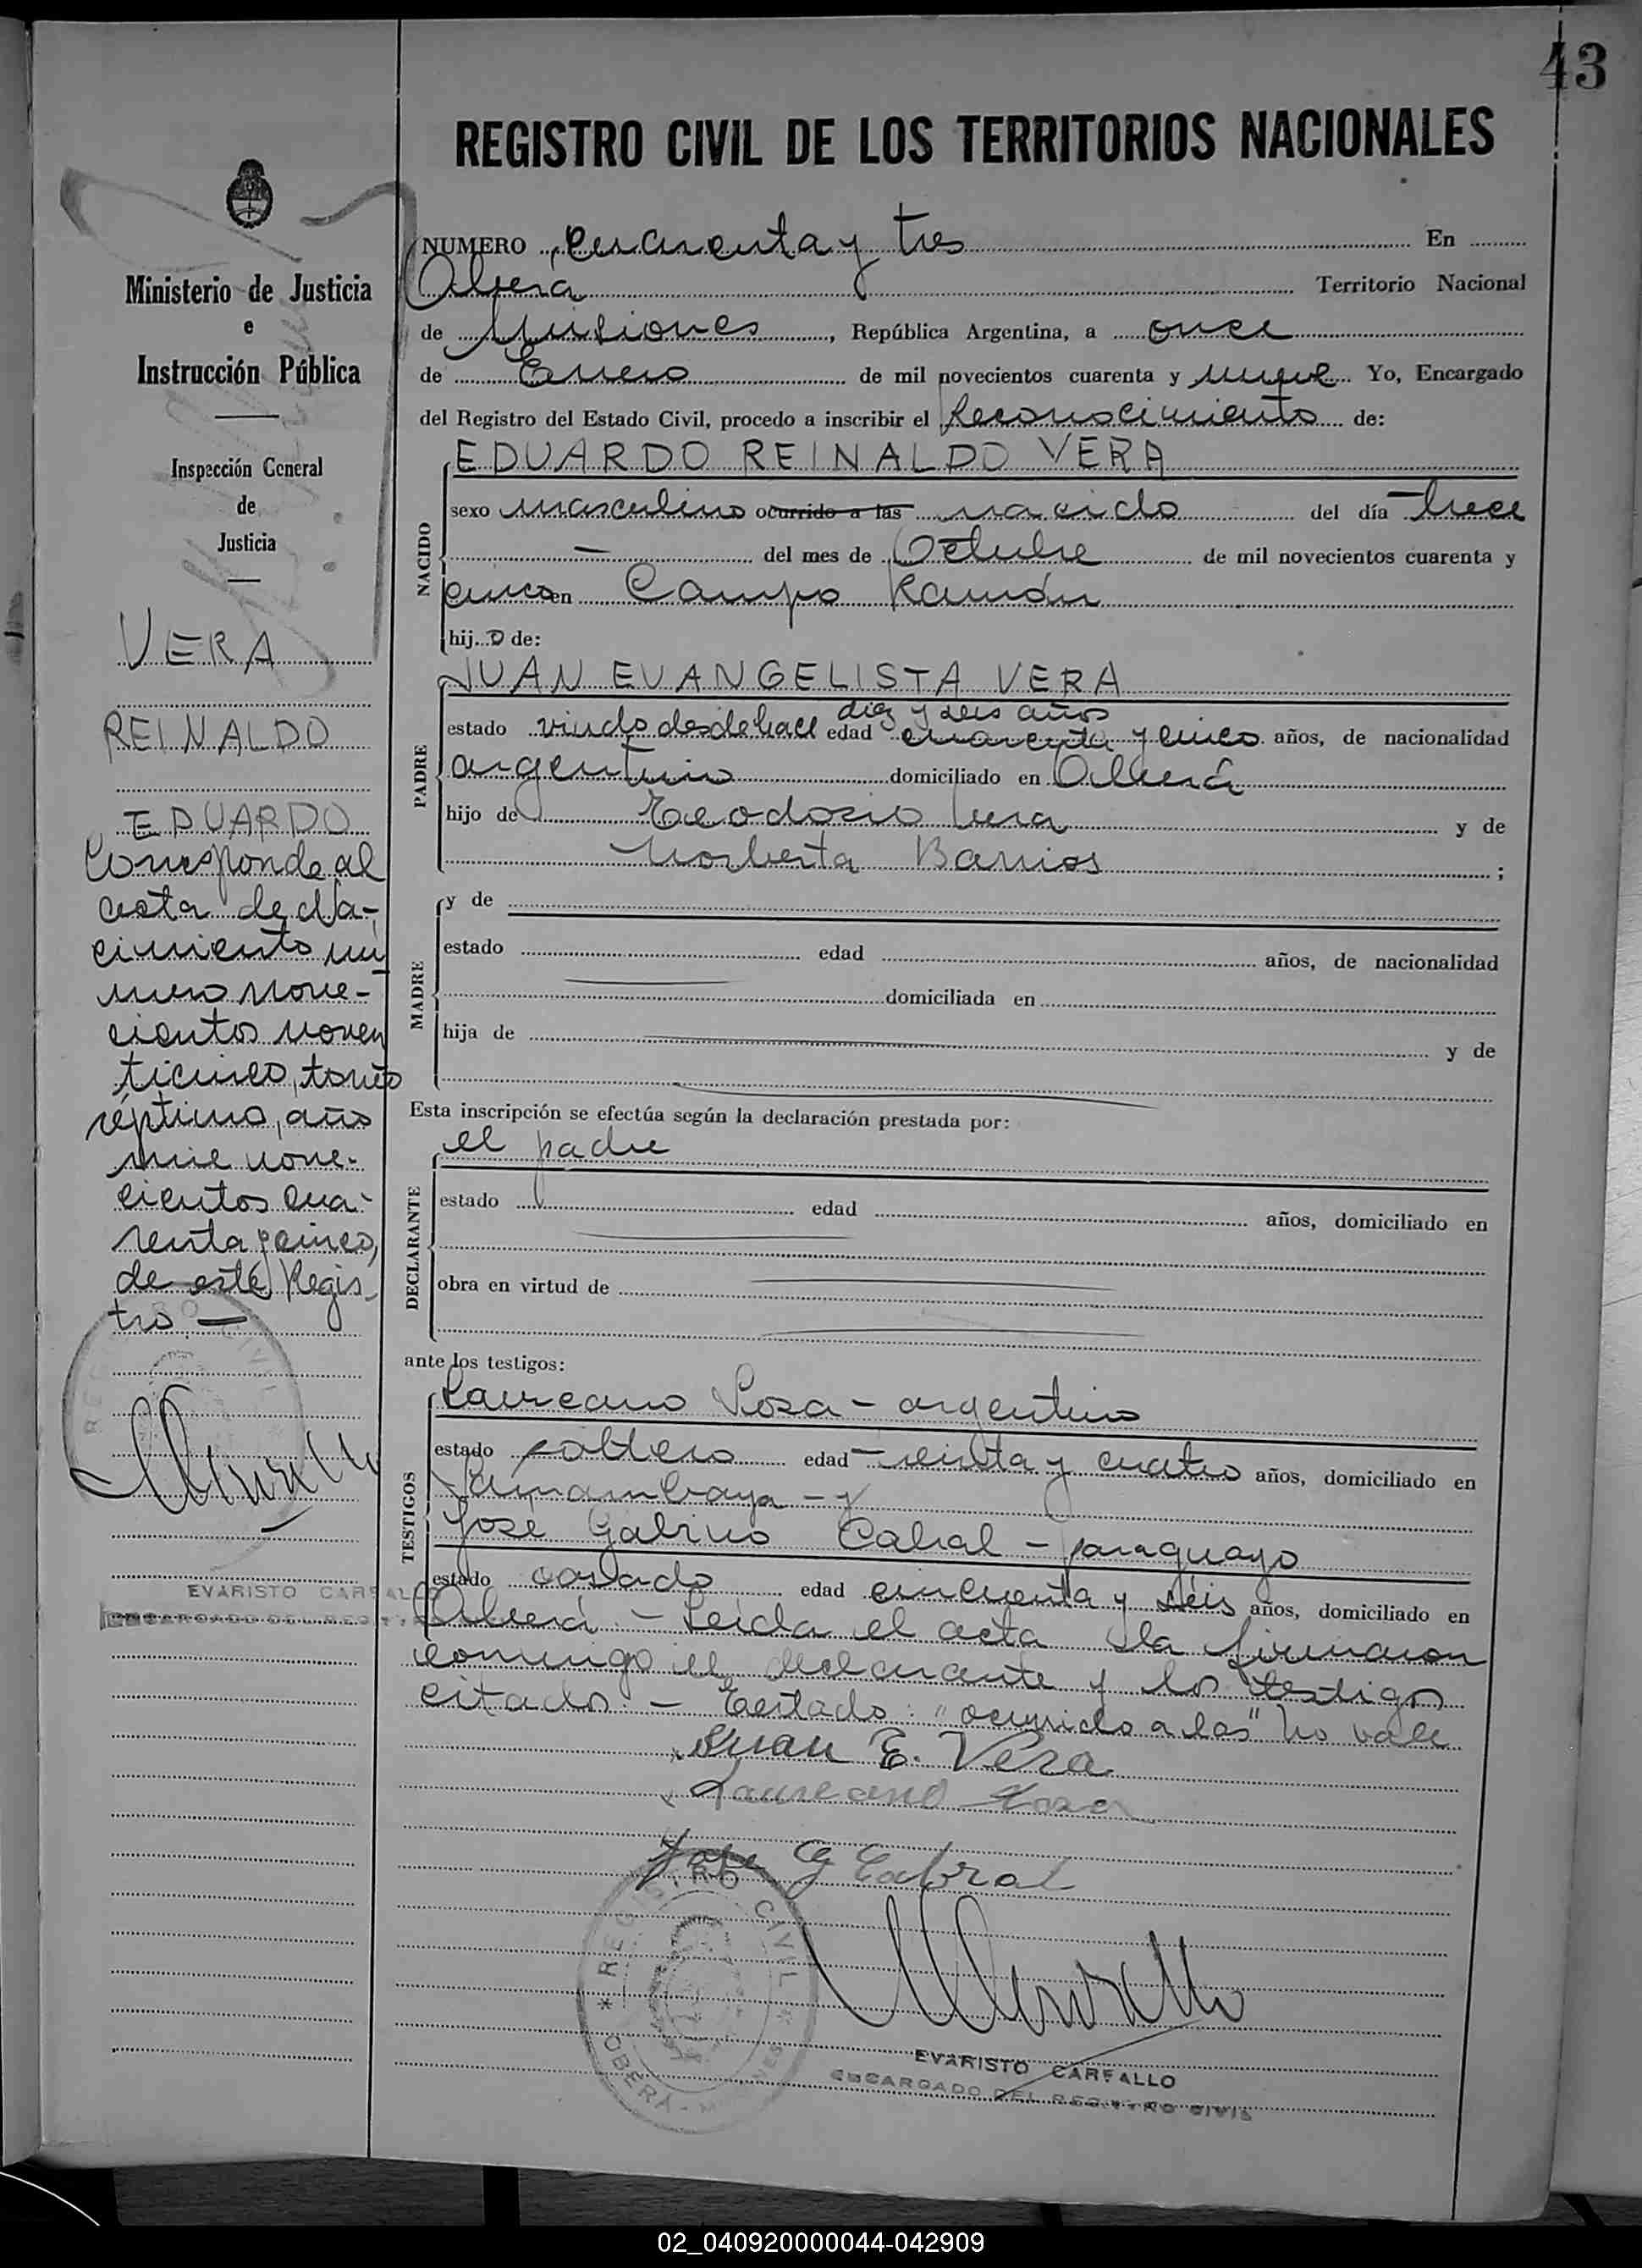 43
REGISTRO CIVIL DE LOS TERRITORIOS NACIONALES
Ministerio de Justicia
e
Instrucción Pública
Inspección General
de
Justicia
VERA
REINALDO
EDUARDO
Corresponde al
acta de Na-
cimiento nú
mero nove-
cientos noven
ticinco, tomo
séptimo, año
mil nove-
cientos cua-
renta y cinco,
de este Regis-
tro. —
EVARISTO CARFALLO
ENCARGADO DEL REGISTRO
NUMERO cuarenta y tres En
Oberá Territorio Nacional
de Misiones, República Argentina, a once
de Enero de mil novecientos cuarenta y nueve Yo, Encargado
del Registro del Estado Civil, procedo a inscribir el Reconocimiento de:
NACIDO
EDUARDO REINALDO VERA
sexo masculino ocurrido a las nacido del día trece
— del mes de Octubre de mil novecientos cuarenta y
cinco en Campo Ramón
hij o de:
PADRE
JUAN EVANGELISTA VERA
diez y seis años
estado viudo desde hace edad cuarenta y cinco años, de nacionalidad
argentino domiciliado en Oberá
hijo de Teodosio Vera y de
Norberta Barrios ;
MADRE
y de
estado edad años, de nacionalidad
domiciliada en
hija de y de
Esta inscripción se efectúa según la declaración prestada por:
DECLARANTE
el padre
estado edad años, domiciliado en
obra en virtud de
ante los testigos:
TESTIGOS
Laureano Sosa - argentino
estado soltero edad treinta y cuatro años, domiciliado en
Yamambaya - y
José Gabino Cabral - paraguayo
estado casado edad cincuenta y séis años, domiciliado en
Oberá - Leída el acta la firmaron
conmigo el declarante y los testigos
citados. - Testado: "ocurrido a las" No vale
Juan E. Vera
Laureano Sosa
Jose G Cabral
REGISTRO CIVIL
OBERÁ - MISIONES
EVARISTO CARFALLO
ENCARGADO DEL REGISTRO CIVIL
02_040920000044-042909